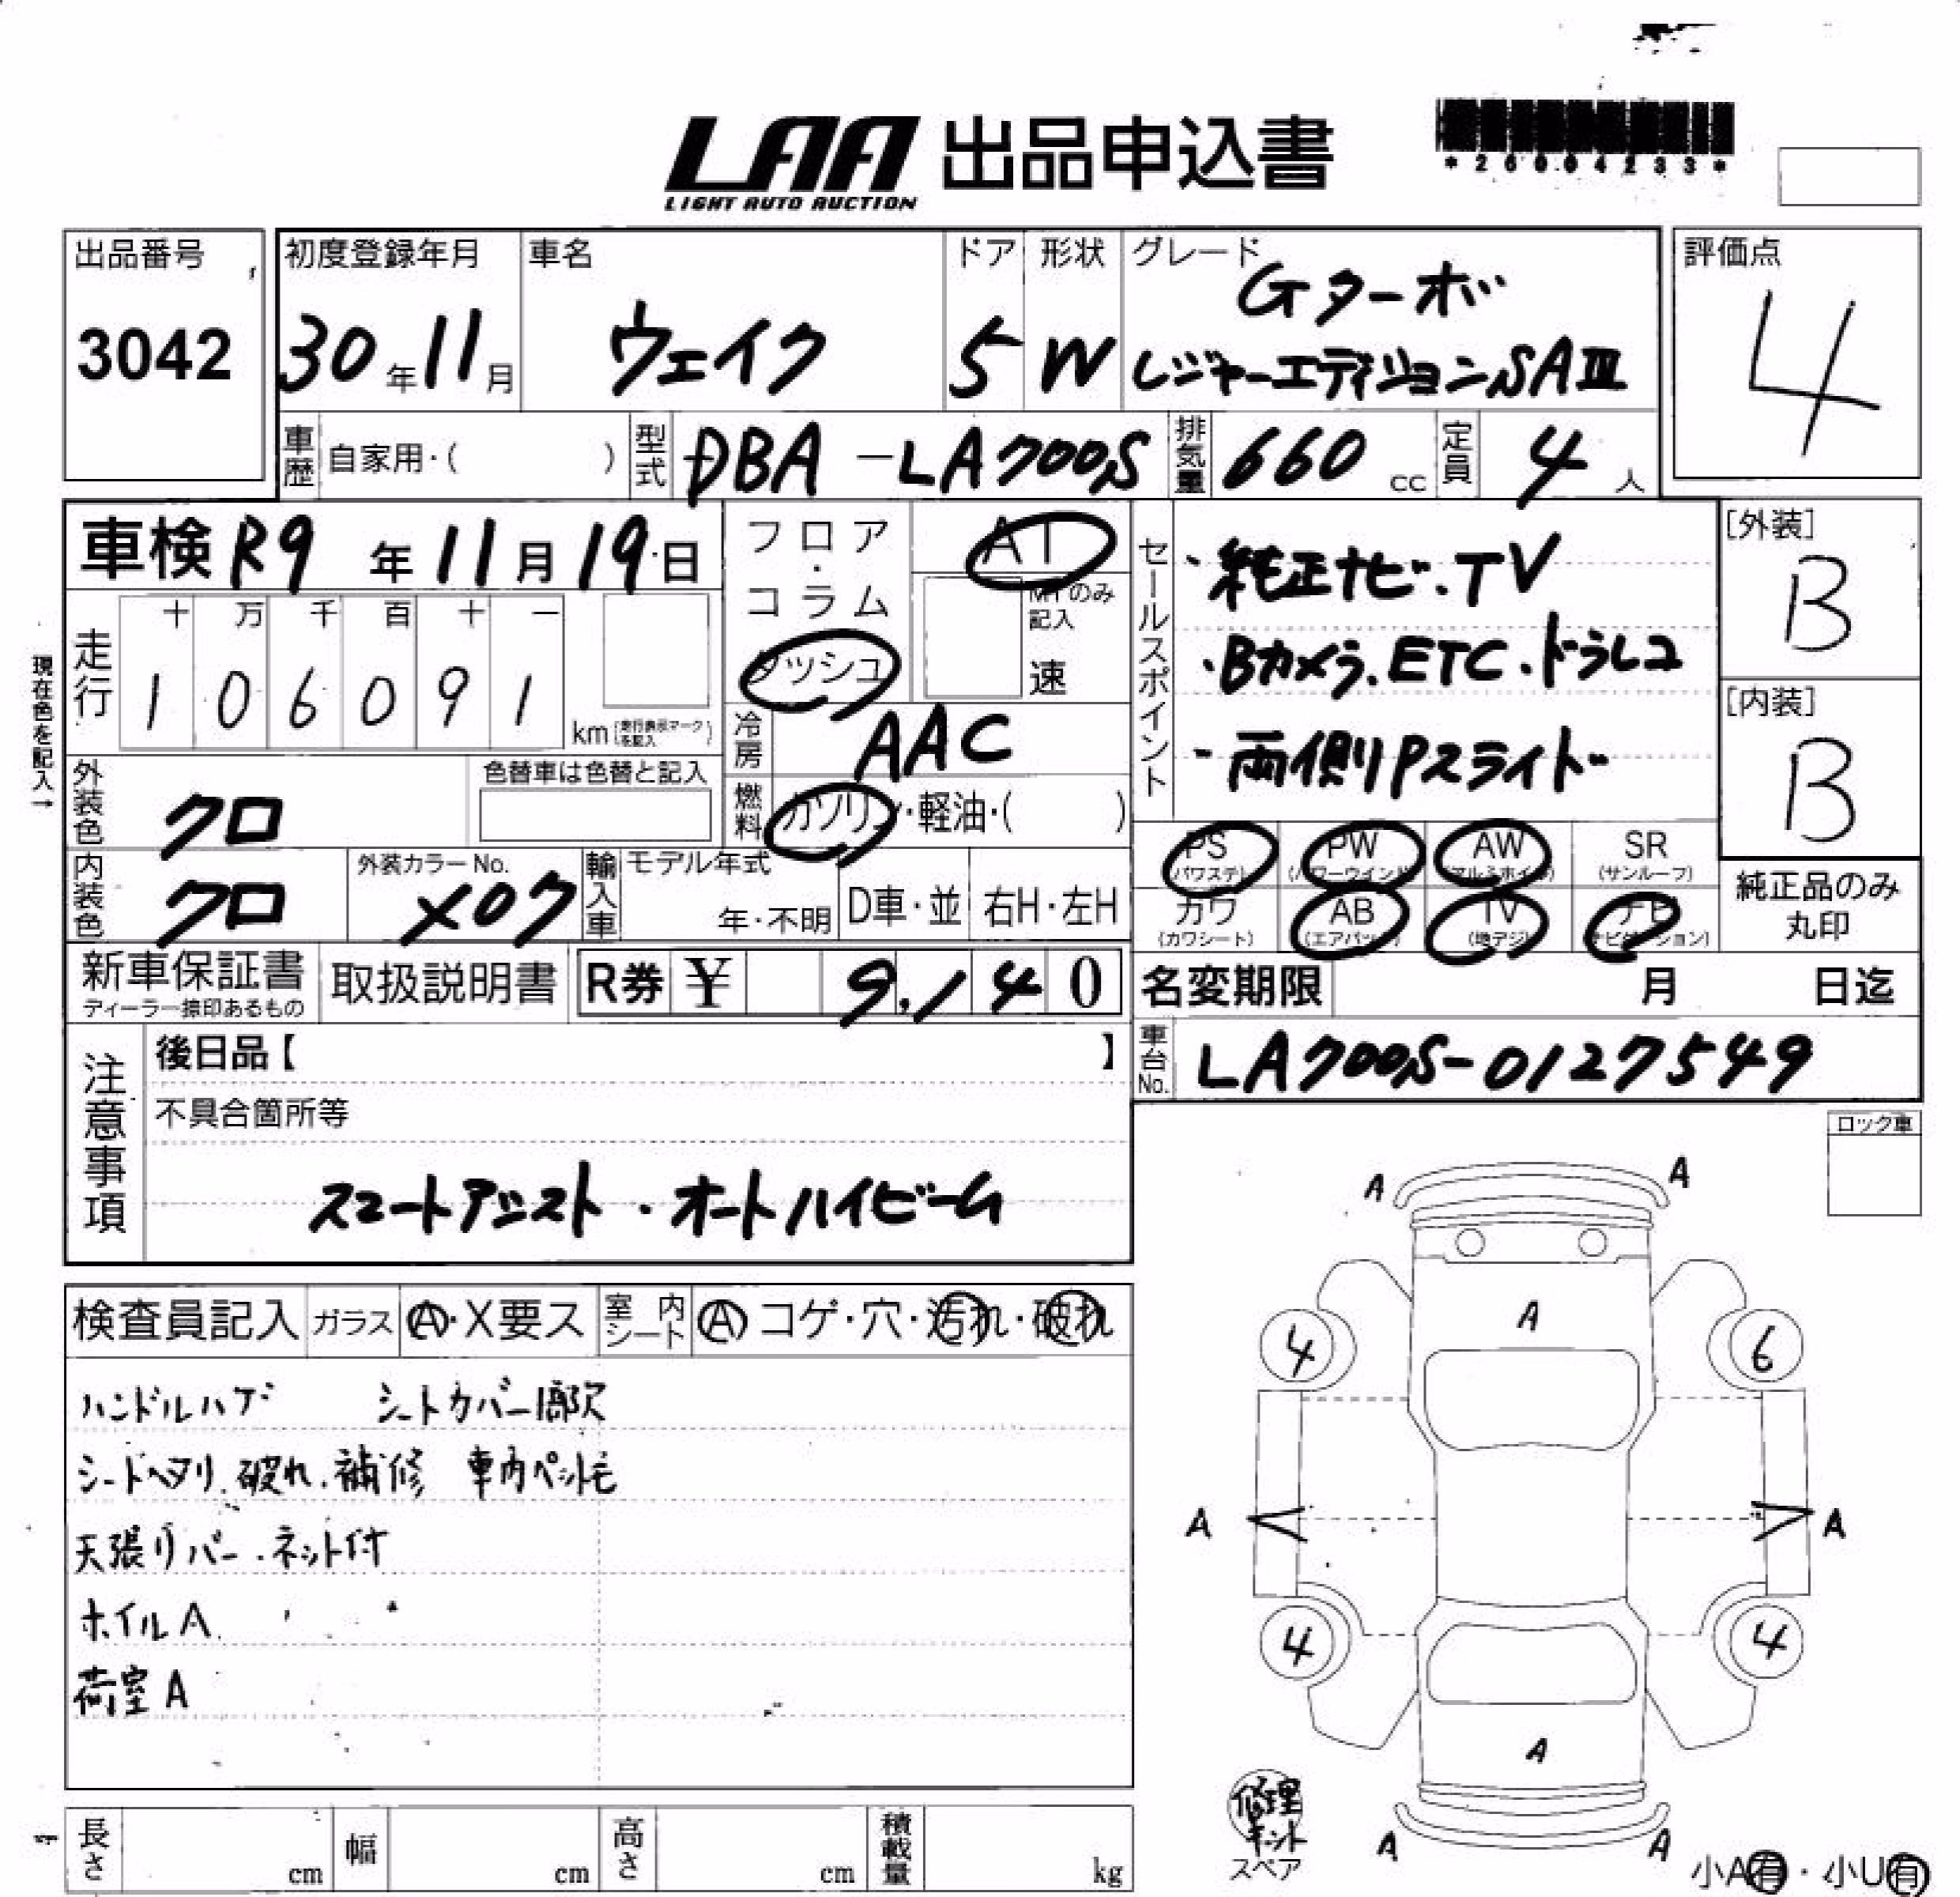 LAA 出品申込書
LIGHT AUTO AUCTION
*26004233*
出品番号
3042
初度登録年月
30年11月
車名
ウェイク
ドア
5
形状
W
グレード
Gターボ
レジャーエディションSAⅢ
評価点
4
車歴 自家用・( )
型式 DBA-LA700S
排気量 660 cc
定員 4 人
車検 R9年11月19日
現在色を記入→
走行
十 万 千 百 十 一
1 0 6 0 9 1 km
(走行表示マークを記入)
フロア・コラム
ダッシュ
AT
MTのみ記入
速
冷房 AAC
燃料 ガソリン・軽油・( )
セールスポイント
・純正ナビ.TV
・Bカメラ.ETC.ドラレコ
・両側Pスライド
[外装]
B
[内装]
B
外装色 クロ
色替車は色替と記入
内装色 クロ
外装カラーNo.
X07
輸入車
モデル年式
年・不明
D車・並
右H・左H
PS (パワステ)
PW (パワーウインド)
AW (アルミホイル)
SR (サンルーフ)
カワ (カワシート)
AB (エアバッグ)
TV (地デジ)
ナビ (ナビゲーション)
純正品のみ
丸印
新車保証書
ディーラー捺印あるもの
取扱説明書
R券 ¥ 9,140
名変期限 月 日迄
車台No. LA700S-0127549
注意事項
後日品【 】
不具合箇所等
スマートアシスト・オートハイビーム
ロック車
検査員記入 ガラス A・X要ス
室内シート A コゲ・穴・汚れ・破れ
ハンドルハゲ シートカバー1部欠
シートヘタリ.破れ.補修 車内ペット毛
天張リバー.ネット付
ホイルA
荷室A
A A
A
4 6
A A
4 4
A
A A
修理キット
スペア
小A有・小U有
長さ cm
幅 cm
高さ cm
積載量 kg